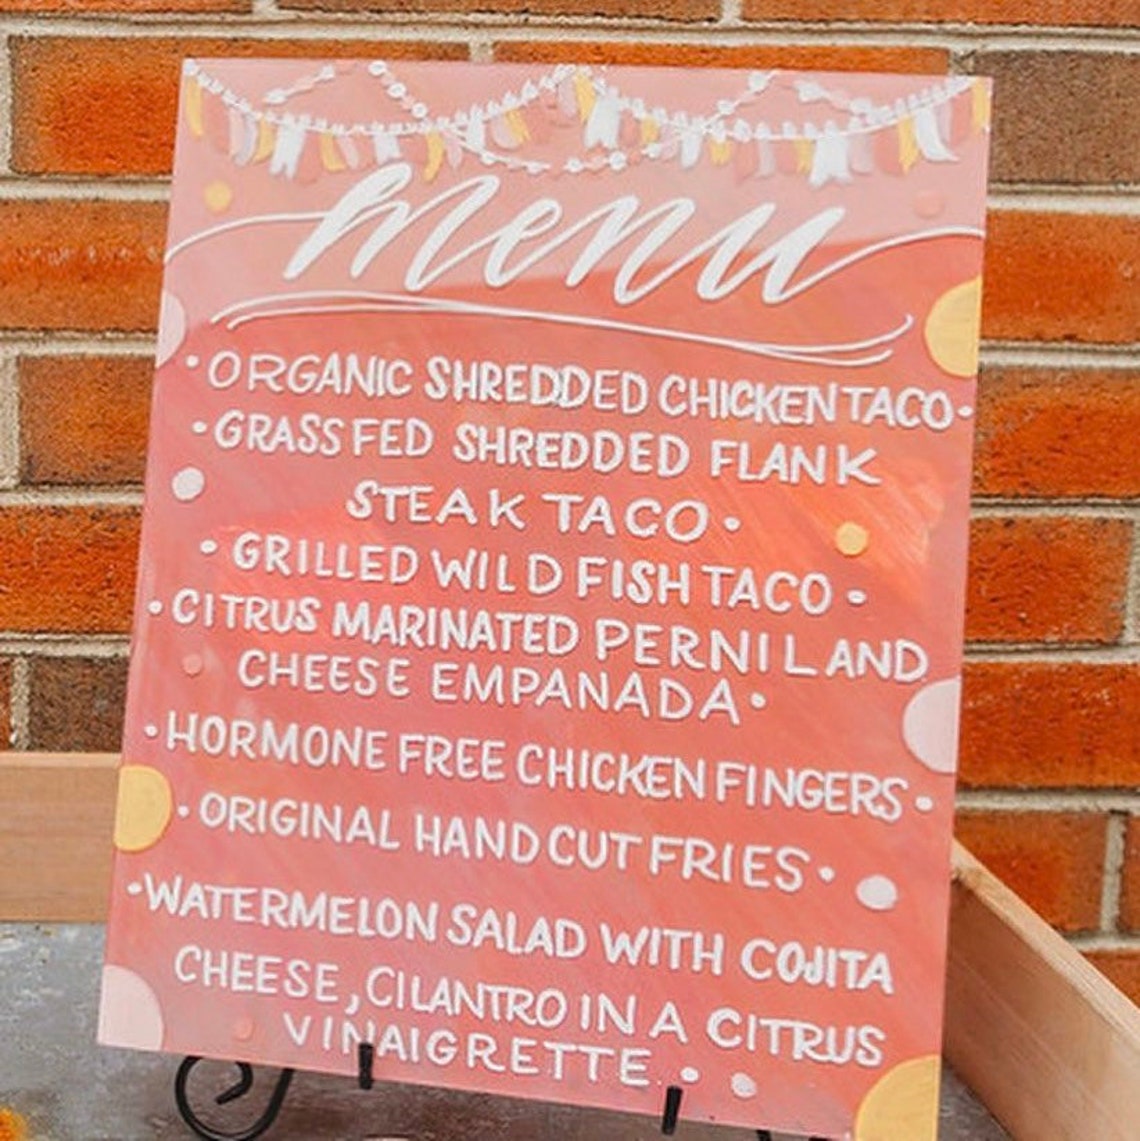 menu
• ORGANIC SHREDDED CHICKEN TACO •
• GRASS FED SHREDDED FLANK
STEAK TACO •
• GRILLED WILD FISH TACO •
• CITRUS MARINATED PERNIL AND
CHEESE EMPANADA •
• HORMONE FREE CHICKEN FINGERS •
• ORIGINAL HAND CUT FRIES •
• WATERMELON SALAD WITH COJITA
CHEESE, CILANTRO IN A CITRUS
VINAIGRETTE •